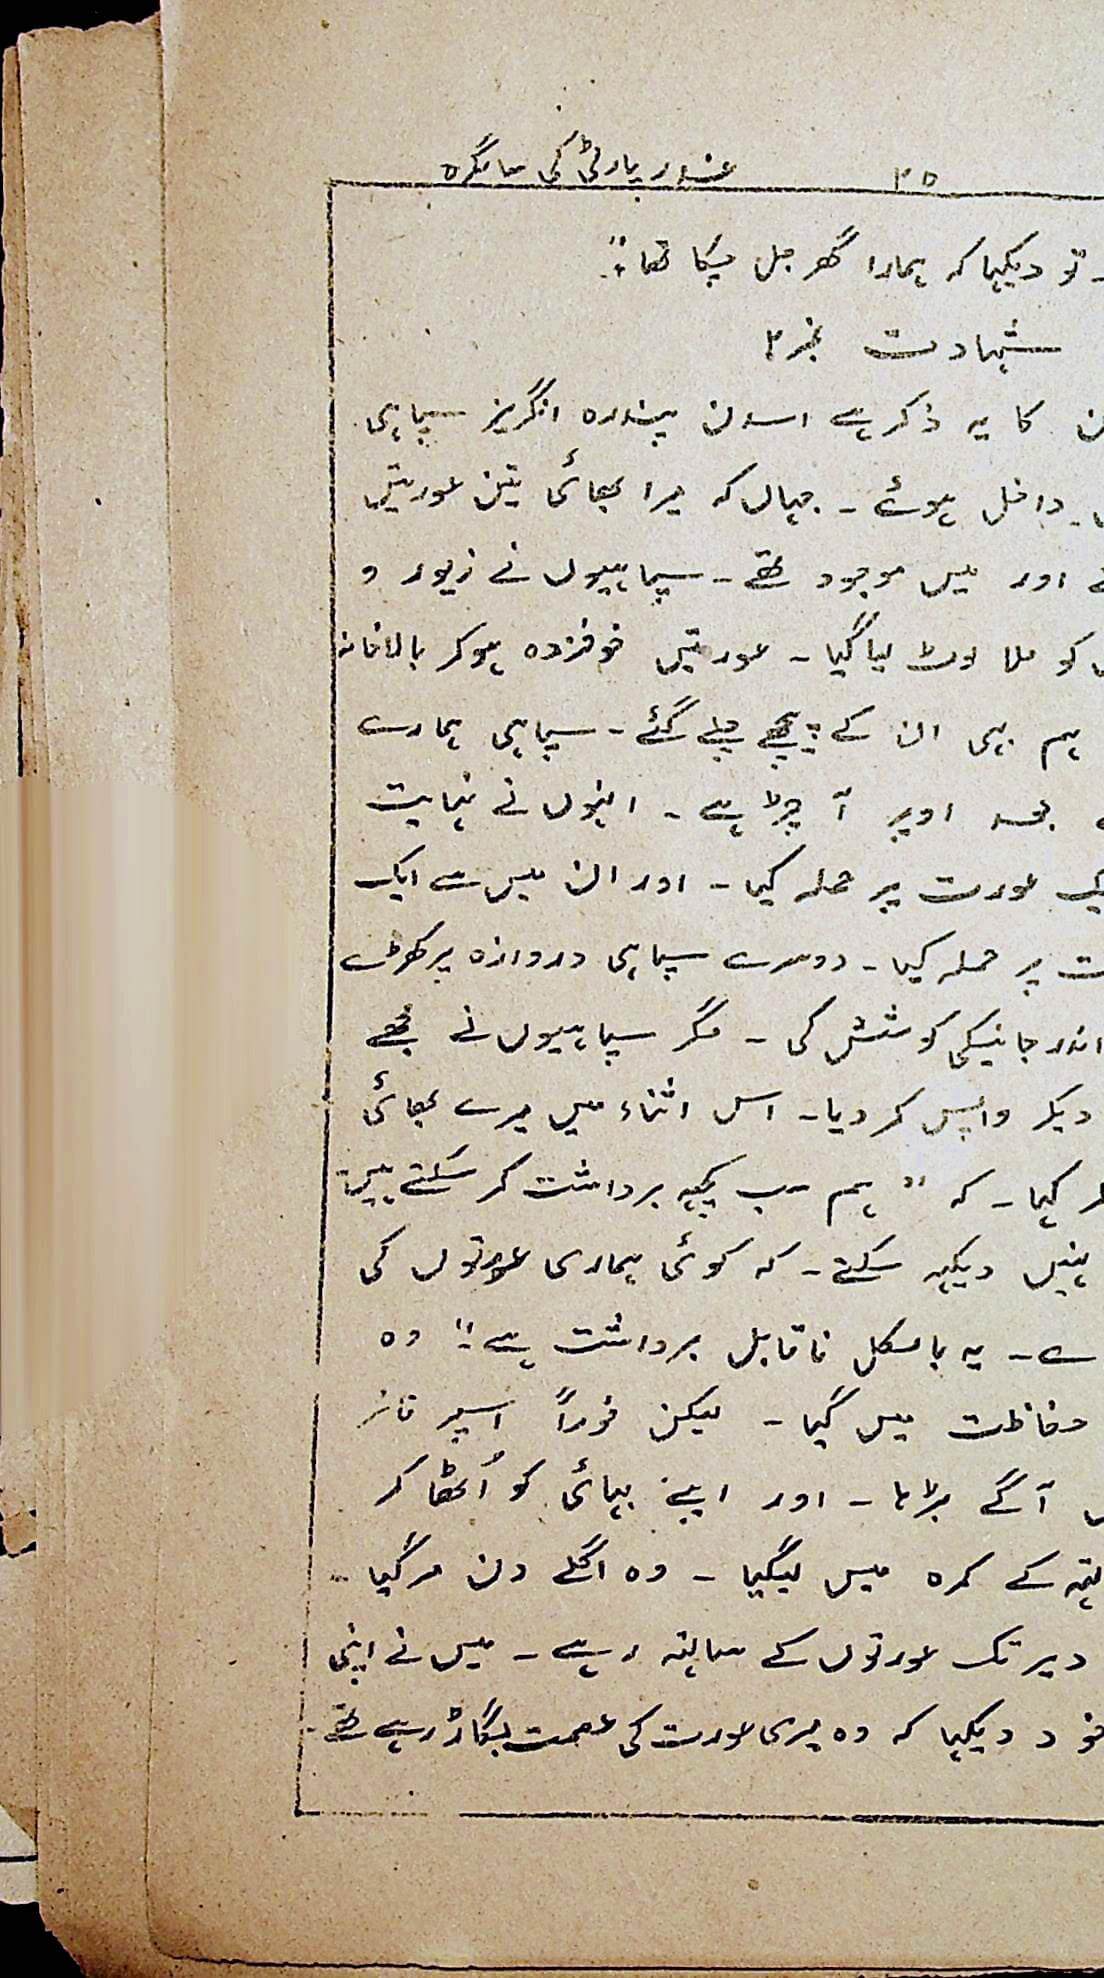 ۲۵ غدر پارٹی کی سالگرہ
تو دیکہا کہ ہمارا گھر جل چکا تھا"
شہادت نمبر ۲
کا یہ ذکر ہے اسدن پندرہ انگریز سپاہی
داخل ہوئے - جہاں کہ میرا بھائی تین عورتیں
اور میں موجود تھے - سپاہیوں نے زیور و
کو ملا لوٹ لیا گیا - عورتیں خوفزدہ ہوکر بالاخانہ
ہم بہی ان کے پیچھے چلے گئے - سپاہی ہمارے
اوپر آ چڑہے - انہوں نے نہایت
عورت پر حملہ کیا - اور ان میں سے ایک
پر حملہ کیا - دوسرے سپاہی دروازہ پر کھڑے
اندر جانیکی کوشش کی - مگر سپاہیوں نے مجھے
دیکر واپس کر دیا - اس اثناء میں میرے بھائی
کہا - کہ " ہم سب کچہہ برداشت کر سکتے ہیں
نہیں دیکہہ سکتے - کہ کوئی ہماری عورتوں کی
یہ بالکل ناقابل برداشت ہے" وہ
حفاظت میں گیا - لیکن فوراً اسپر فائر
آگے بڑہا - اور اپنے بہائی کو اُٹھا کر
کے کمرہ میں لیگیا - وہ اگلے دن مرگیا -
دیر تک عورتوں کے ساتہہ رہے - میں نے اپنی
خود دیکہا کہ وہ میری عورت کی عصمت بگاڑ رہے تھے -